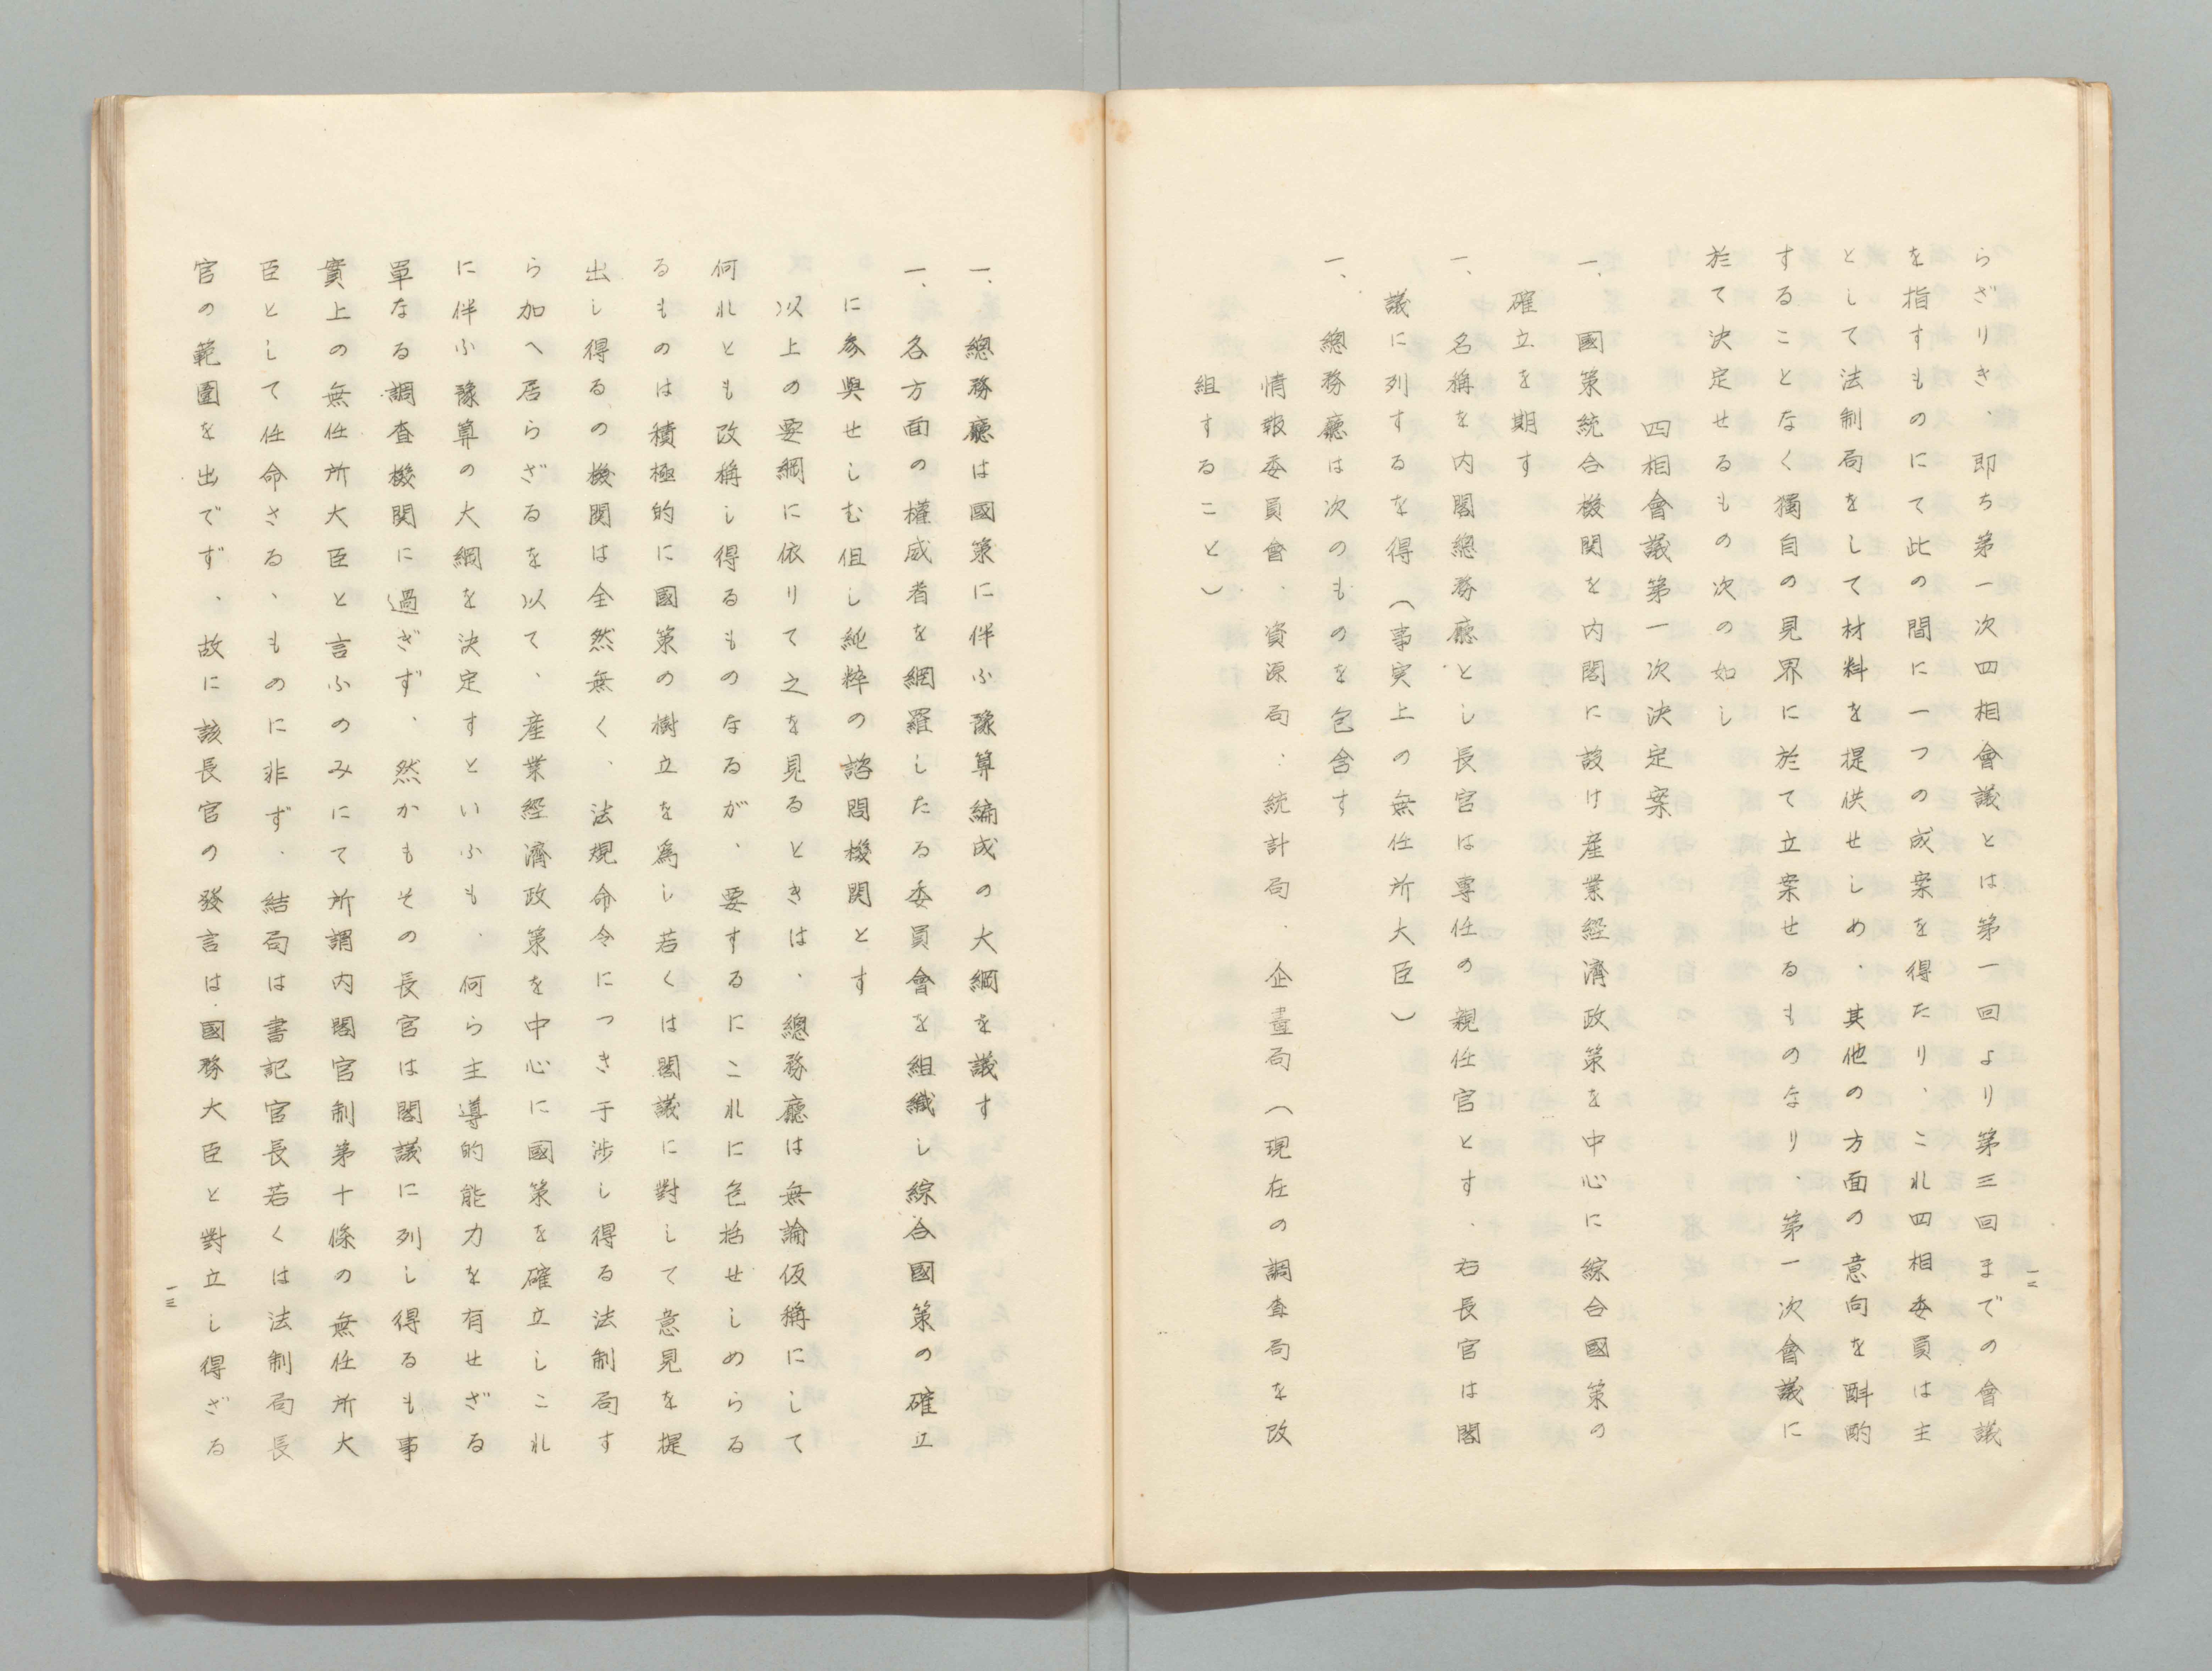 らざりき、即ち第一次四相會議とは第一回より第三回までの會議
を指すものにて此の間に一つの成案を得たり、これ四相委員は主
として法制局をして材料を提供せしめ、其他の方面の意向を斟酌
することなく獨自の見界に於て立案せるものなり、第一次會議に
於て決定せるもの次の如し
四相會議第一次決定案
一、國策統合機関を内閣に設け産業経濟政策を中心に綜合國策の
確立を期す
一、名稱を内閣總務廳とし長官は専任の親任官とす、右長官は閣
議に列するを得（事実上の無任所大臣）
一、總務廳は次のものを包含す
情報委員會、資源局、統計局、企畫局（現在の調査局を改
組すること）
一二
一、總務廳は國策に伴ふ豫算編成の大綱を議す
一、各方面の權威者を網羅したる委員會を組織し綜合國策の確立
に参與せしむ但し純粋の諮問機関とす
以上の要綱に依りて之を見るときは、總務廳は無論仮稱にして
何れとも改稱し得るものなるが、要するにこれに包括せしめらる
るものは積極的に國策の樹立を為し若くは閣議に對して意見を提
出し得るの機関は全然無く、法規命令につき干渉し得る法制局す
ら加へ居らざるを以て、産業経濟政策を中心に國策を確立しこれ
に伴ふ豫算の大綱を決定すといふも、何ら主導的能力を有せざる
單なる調査機関に過ぎず、然かもその長官は閣議に列し得るも事
實上の無任所大臣と言ふのみにて所謂内閣官制第十條の無任所大
臣として任命さる、ものに非ず、結局は書記官長若くは法制局長
官の範圍を出でず、故に該長官の發言は國務大臣と對立し得ざる
一三